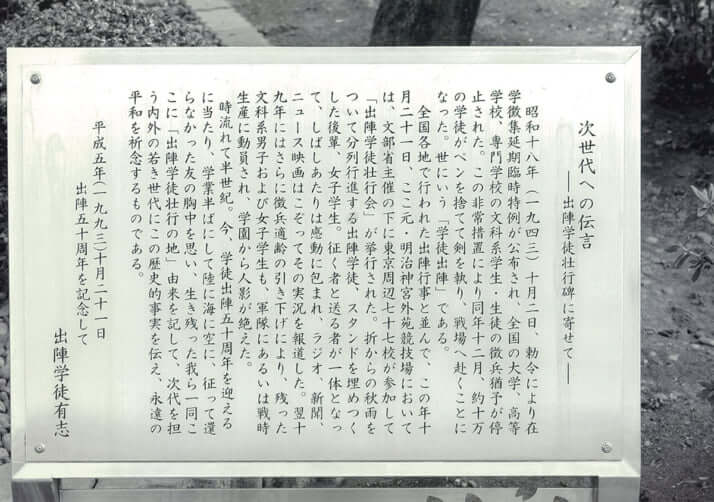 次世代への伝言
──出陣学徒壮行碑に寄せて──
昭和十八年（一九四三）十月二日、勅令により在
学徴集延期臨時特例が公布され、全国の大学、高等
学校、専門学校の文科系学生・生徒の徴兵猶予が停
止された。この非常措置により同年十二月、約十万
の学徒がペンを捨てて剣を執り、戦場へ赴くことに
なった。世にいう「学徒出陣」である。
全国各地で行われた出陣行事と並んで、この年十
月二十一日、ここ元・明治神宮外苑競技場において
は、文部省主催の下に東京周辺七十七校が参加して
「出陣学徒壮行会」が挙行された。折からの秋雨を
ついて分列行進する出陣学徒、スタンドを埋めつく
した後輩、女子学生。征く者と送る者が一体となっ
て、しばしあたりは感動に包まれ、ラジオ、新聞、
ニュース映画はこぞってその実況を報道した。翌十
九年にはさらに徴兵適齢の引き下げにより、残った
文科系男子および女子学生も、軍隊にあるいは戦時
生産に動員され、学園から人影が絶えた。
時流れて半世紀。今、学徒出陣五十周年を迎える
に当たり、学業半ばにして陸に海に空に、征って還
らなかった友の胸中を思い、生き残った我ら一同こ
こに「出陣学徒壮行の地」由来を記して、次代を担
う内外の若き世代にこの歴史的事実を伝え、永遠の
平和を祈念するものである。
平成五年（一九九三）十月二十一日
出陣五十周年を記念して
出陣学徒有志